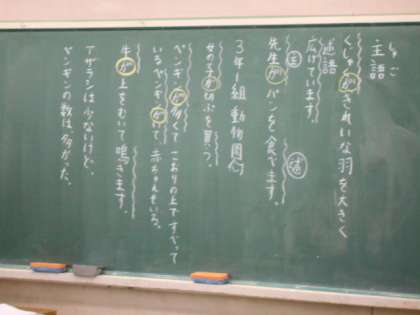 しゅご
主語
くじゃくがきれいな羽を大きく
広げています。
述語
先生がパンを食べます。
3年1組 動物園
女の子が切ぷを買う。
ペンギンが多くてこおりの上ですべって
いるペンギンがいて赤ちゃんもいる。
牛が上をむいて鳴きます。
アザラシは少ないけど、
ペンギンの数は、多かった。